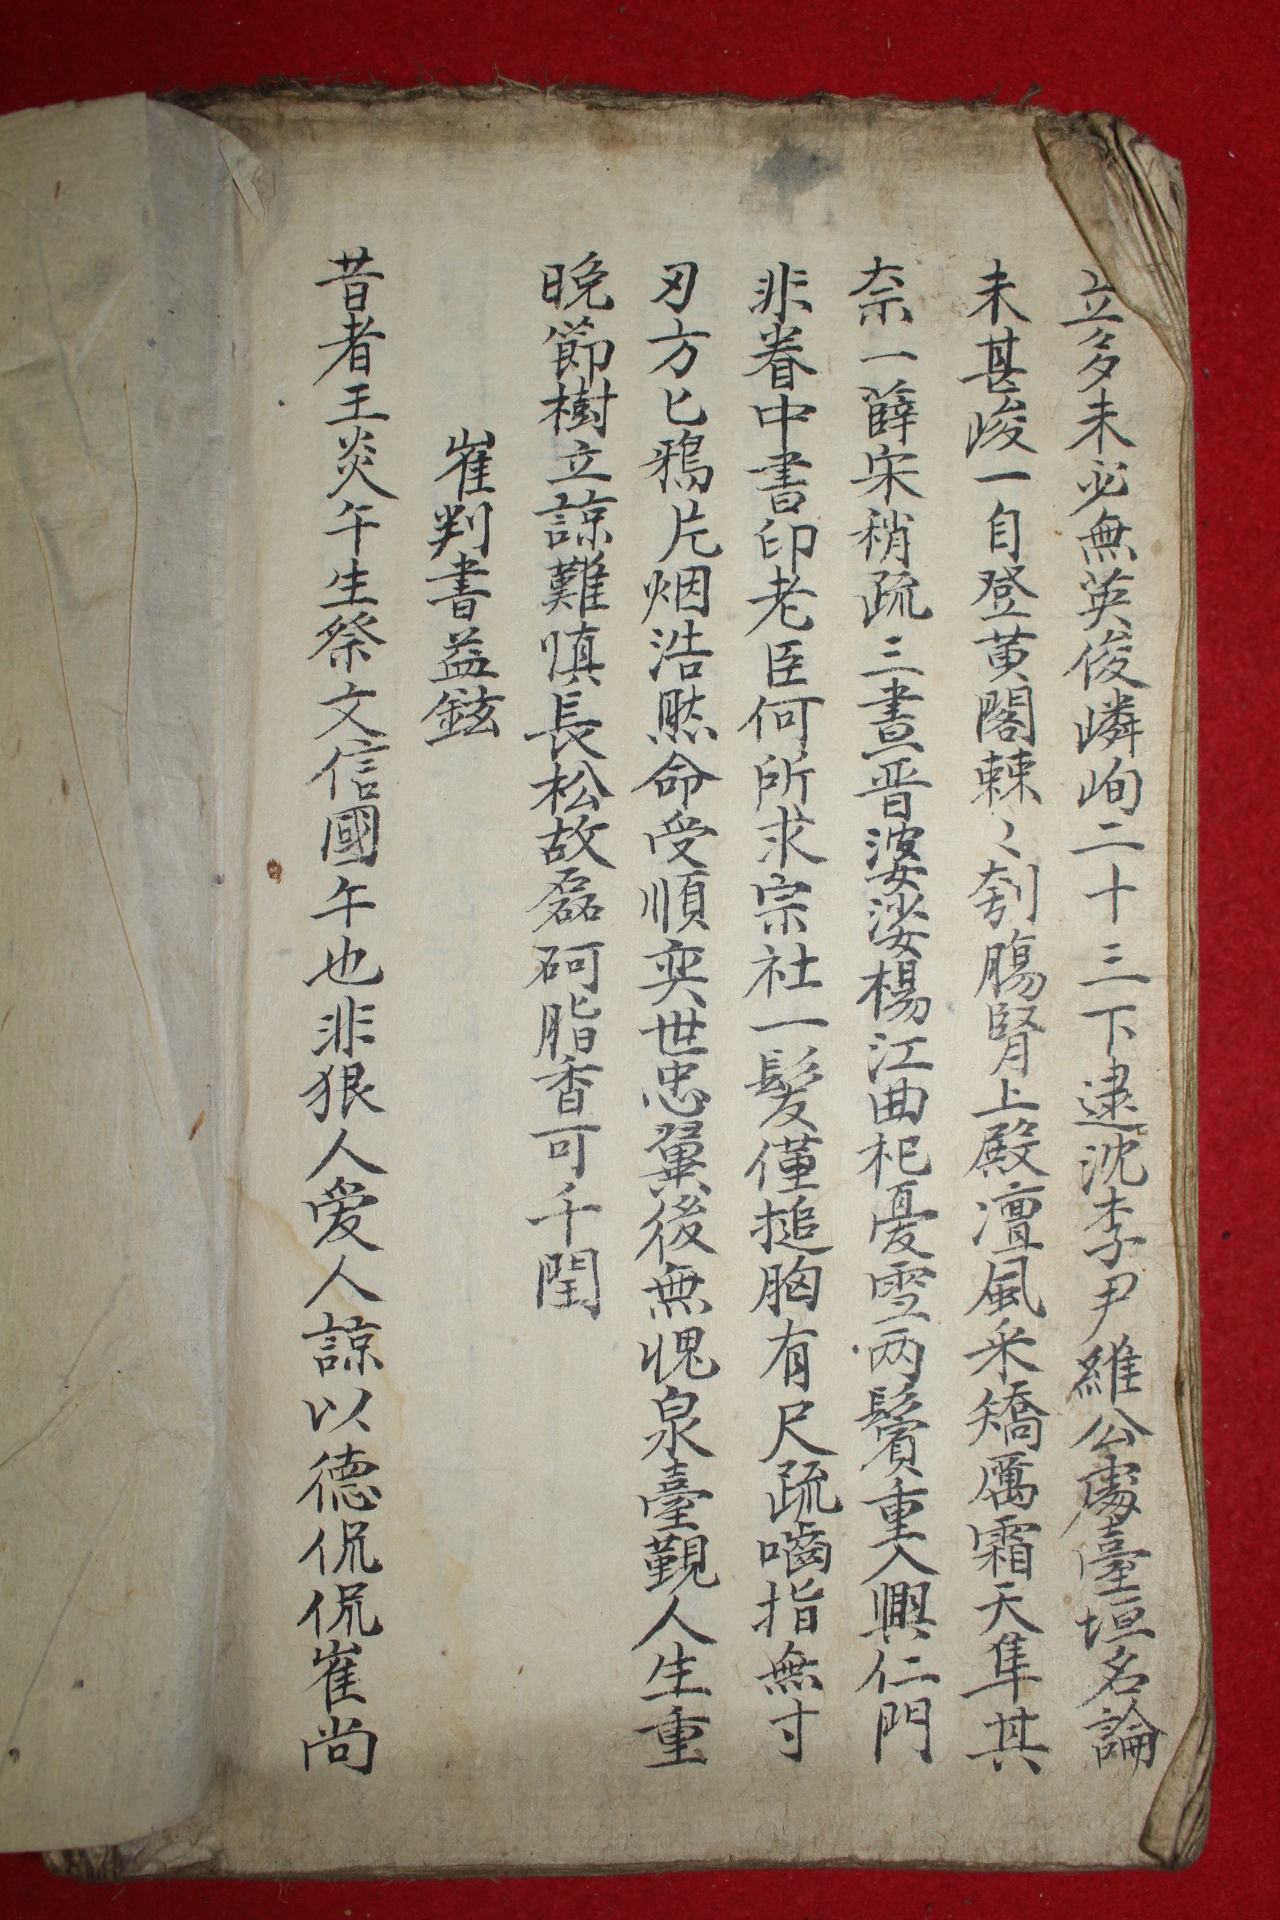 立多未必無英俊嶙峋二十三下逮沈李尹維公處臺垣名論
未甚峻一自登黄閣棘〻刳膓腎上殿凜風采矯厲霜天隼其
奈一薛宋稍疏三晝晋婆娑楊江曲杞憂雪两鬢重入興仁門
非眷中書印老臣何所求宗社一髮僅搥胸有尺疏嚙指無寸
刃方匕鴉片烟浩然命受順奕世忠翼後無愧泉臺覲人生重
晚節樹立諒難慎長松故磊砢脂香可千閏
崔判書益鉉
昔者王炎午生祭文信國午也非狠人爱人諒以德侃侃崔尚